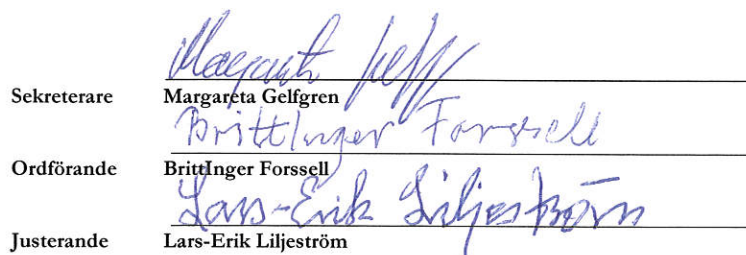 Margareta Gelfg
Sekreterare Margareta Gelfgren
BrittInger Forssell
Ordförande BrittInger Forssell
Lars-Erik Liljeström
Justerande Lars-Erik Liljeström